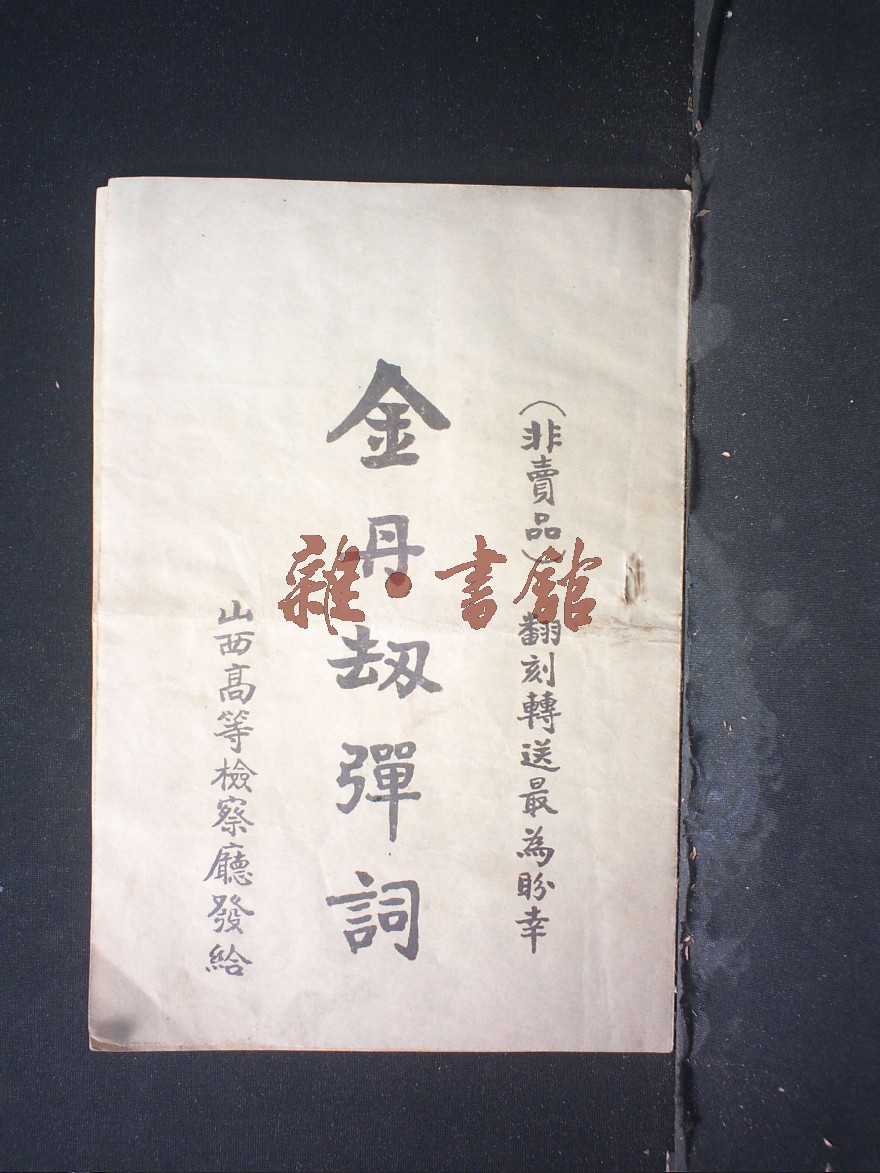 (非賣品)翻刻轉送最為盼幸
金丹刼彈詞
山西高等檢察廳發給
雜·書館